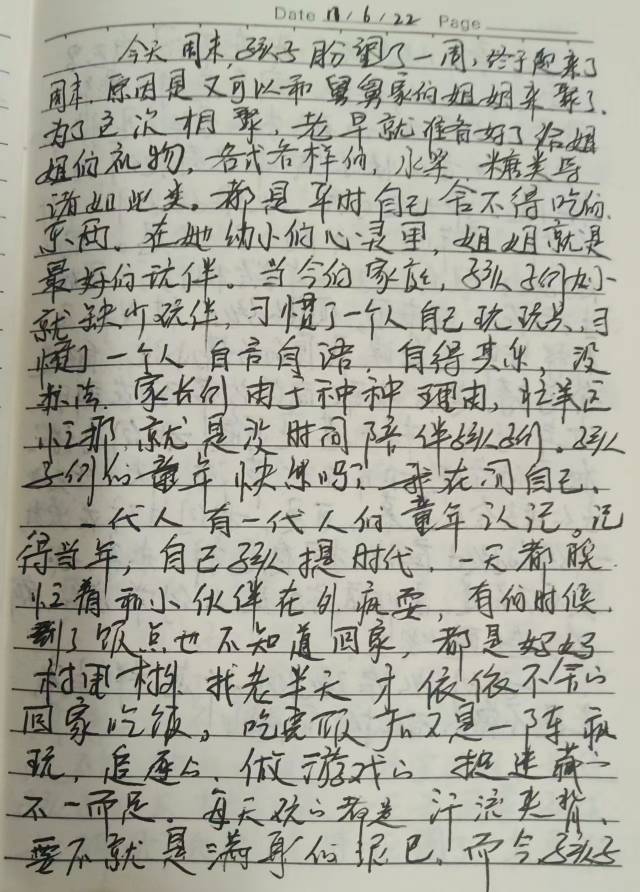 Date 17/6/22 Page
今天周末,孩子盼望了一周,终于迎来了
周末,原因是又可以和舅舅家的姐姐来聚了.
为了这次相聚,老早就准备好了给姐
姐的礼物,各式各样的,水果,糖类等
诸如此类。都是平时自己舍不得吃的
东西,在她幼小的心灵里,姐姐就是
最好的玩伴。当今的家庭,孩子们从小
就缺少玩伴,习惯了一个人自己玩玩具,习
惯了一个人自言自语,自得其乐,没
办法,家长们由于种种理由,忙这
忙那,就是没时间陪伴孩子们。孩
子们的童年快乐吗?我在问自己.
一代人有一代人的童年认识。记
得当年,自己孩提时代,一天都
忙着和小伙伴在外疯耍,有的时候,
到了饭点也不知道回家,都是妈妈
村里村外找老半天才依依不舍的
回家吃饭。吃完饭后又是一阵疯
玩,追逐的,做游戏的,捉迷藏的
不一而足。每天玩的都是汗流夹背,
要不就是满身的泥巴,而今孩子